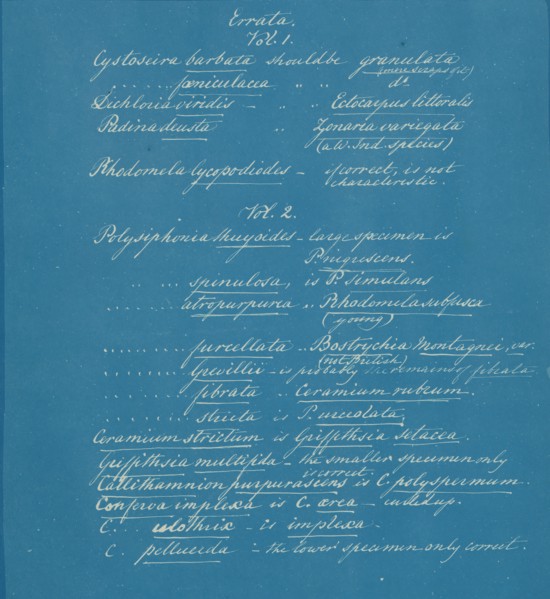 Errata.
Vol. 1.
Cystoseira barbata should be granulata
. . . . . . fœniculacea " " do
Dichloria viridis — " Ectocarpus littoralis
Padina deusta " Zonaria variegata
(a W. Ind. species)
Rhodomela lycopodiodes — if correct, is not
characteristic.
Vol. 2.
Polysiphonia thuyoides — large specimen is
P. nigrescens.
" . . . spinulosa, is P. simulans
. . . . . . atropurpurea " Rhodomela subfusca
(young)
. . . . . . . furcellata " Bostrychia Montagnei, var.
(not British)
. . . . . . . Grevillii — is probably the remains of fibrata
. . . . . . . fibrata " Ceramium rubrum.
. . . . . . . stricta is P. urceolata,
Ceramium strictum is Griffithsia setacea.
Griffithsia multifida — the smaller specimen only
is correct.
Callithamnion purpurascens is C. polyspermum.
Conferva implexa is C. ærea — curled up.
C. . . ulothrix — is implexa.
C. pellucida — the lower specimen only correct.